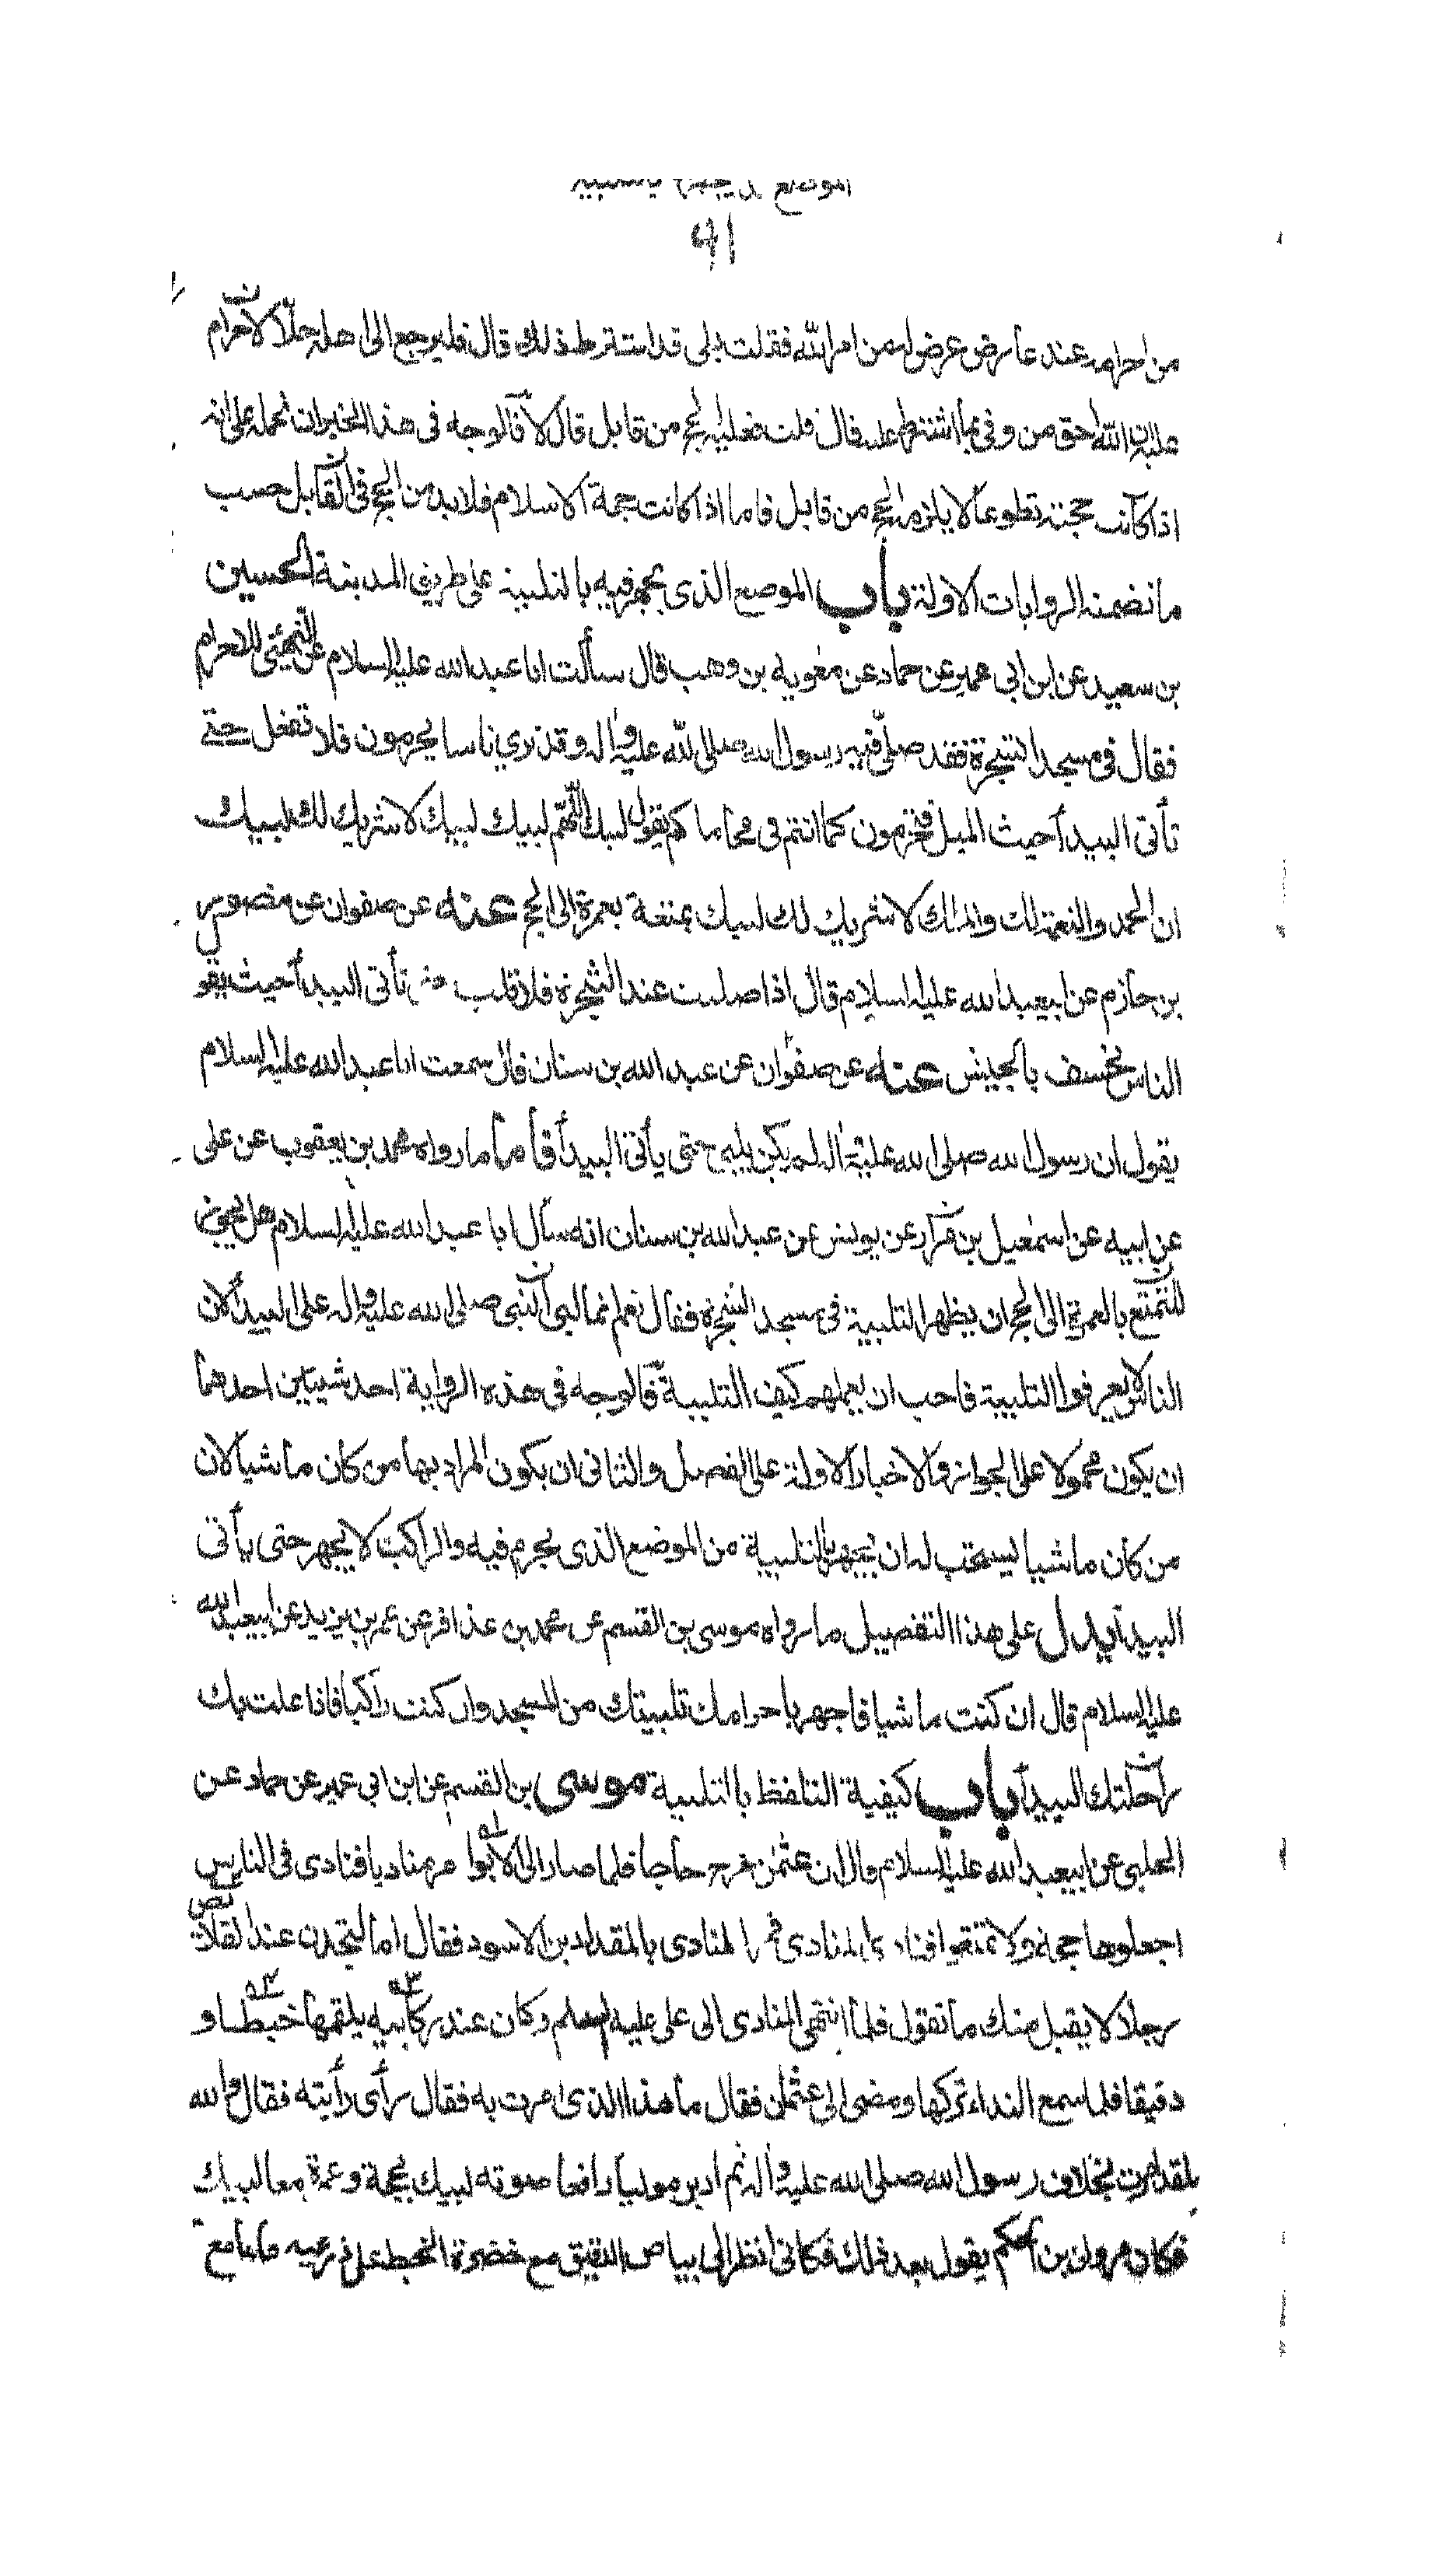 الموضع يجهر بالتلبية
٤١
من احرامه عند عارض عرض له من امر الله فقلت بلى قد اشترط ذلك قال فليرجع الى اهله حلّا لا احرام
عليه ان الله احق من وفى بما اشترط عليه قال قلت فعليه الحج من قابل قال لا فالوجه فى هذا الخبر ان نحمله على انه
اذا كانت حجته تطوعا لا يلزمه الحج من قابل فاما اذا كانت حجة الاسلام فلا بد من الحج فى القابل حسب
ما تضمنه الروايات الاولة باب الموضع الذى يجهر فيه بالتلبية على طريق المدينة الحسين
بن سعيد عن ابن ابى عمير عن حماد عن معوية بن وهب قال سألت ابا عبد الله عليه السلام عن التهيئى للاحرام
فقال فى مسجد الشجرة فقد صلّى فيه رسول الله صلى الله عليه واله وقد ترى ناسا يحرمون فلا تفعل حتى
تأتى البيدآ حيث الميل فتحرمون كما انتم فى محاملكم يقول لبيك اللّهمّ لبيك لبيك لا شريك لك لبيك
ان الحمد والنعمة لك والملك لا شريك لك لبيك بمتعة بعمرة الى الحج عنه عن صفوان عن منصور
بن حازم عن ابيعبد الله عليه السلام قال اذا صليت عند الشجرة فلا تلب حتى تأتى البيدآ حيث يقول
الناس يخسف بالجيش عنه عن صفوان عن عبد الله بن سنان قال سمعت ابا عبد الله عليه السلام
يقول ان رسول الله صلى الله عليه واله لم يكن يلبى حتى يأتى البيدآ فأما ما رواه محمد بن يعقوب عن على
عن ابيه عن اسمعيل بن مرار عن يونس عن عبد الله بن سنان انه سأل ابا عبد الله عليه السلام هل يجوز
للمتمتع بالعمرة الى الحج ان يظهر التلبية فى مسجد الشجرة فقال نعم انما لبى النبى صلى الله عليه واله على البيدآ لان
الناس لا يعرفوا التلبية فاحب ان يعلمهم كيف التلبية فالوجه فى هذه الرواية احد شيئين احدهما
ان يكون محمولا على الجواز والاخبار الاولة على الفضل والثانى ان يكون المراد بهما من كان ماشيا لان
من كان ماشيا يستحب له ان يجهر بالتلبية من الموضع الذى يحرم فيه والراكب لا يجهر حتى يأتى
البيدآ يدل على هذا التفصيل ما رواه موسى بن القسم عن محمد بن عذافر عن عمر بن يزيد عن ابيعبد الله
عليه السلام قال ان كنت ماشيا فاجهر باحرامك تلبيتك من المسجد وان كنت راكبا فاذا علت بك
راحلتك البيدآ باب كيفية التلفظ بالتلبية موسى بن القسم عن ابن ابى عمير عن حماد عن
الحلبى عن ابيعبد الله عليه السلام قال ان عثمن خرج حاجا فلما صار الى الابوا امر مناديا فنادى فى الناس
اجعلوها حجة ولا تمتعوا فنادى المنادى فمر المنادى بالمقداد بن الاسود فقال اما لتجدن عند القلائص
رجلا لا يقبل منك ما تقول فلما انتهى المنادى الى على عليه السلم وكان عند ركائبه يلقمها خبطا و
دقيقا فلما سمع النداء تركها ومضى الى عثمن فقال ما هذا الذى امرت به فقال رأى رأيته فقال والله
لقد امرت بخلاف رسول الله صلى الله عليه واله ثم ادبر موليا رافعا صوته لبيك بحجة وعمرة معا لبيك
فكان مروان بن الحكم يقول بعد ذلك فكانى انظر الى بياض الدقيق مع خضرة الخبط على ذراعيه